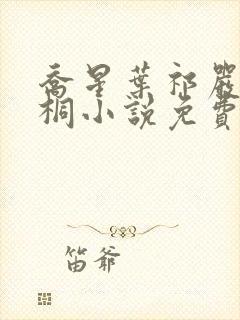 喬星葉祁嚴
桐小說免費
笛爺